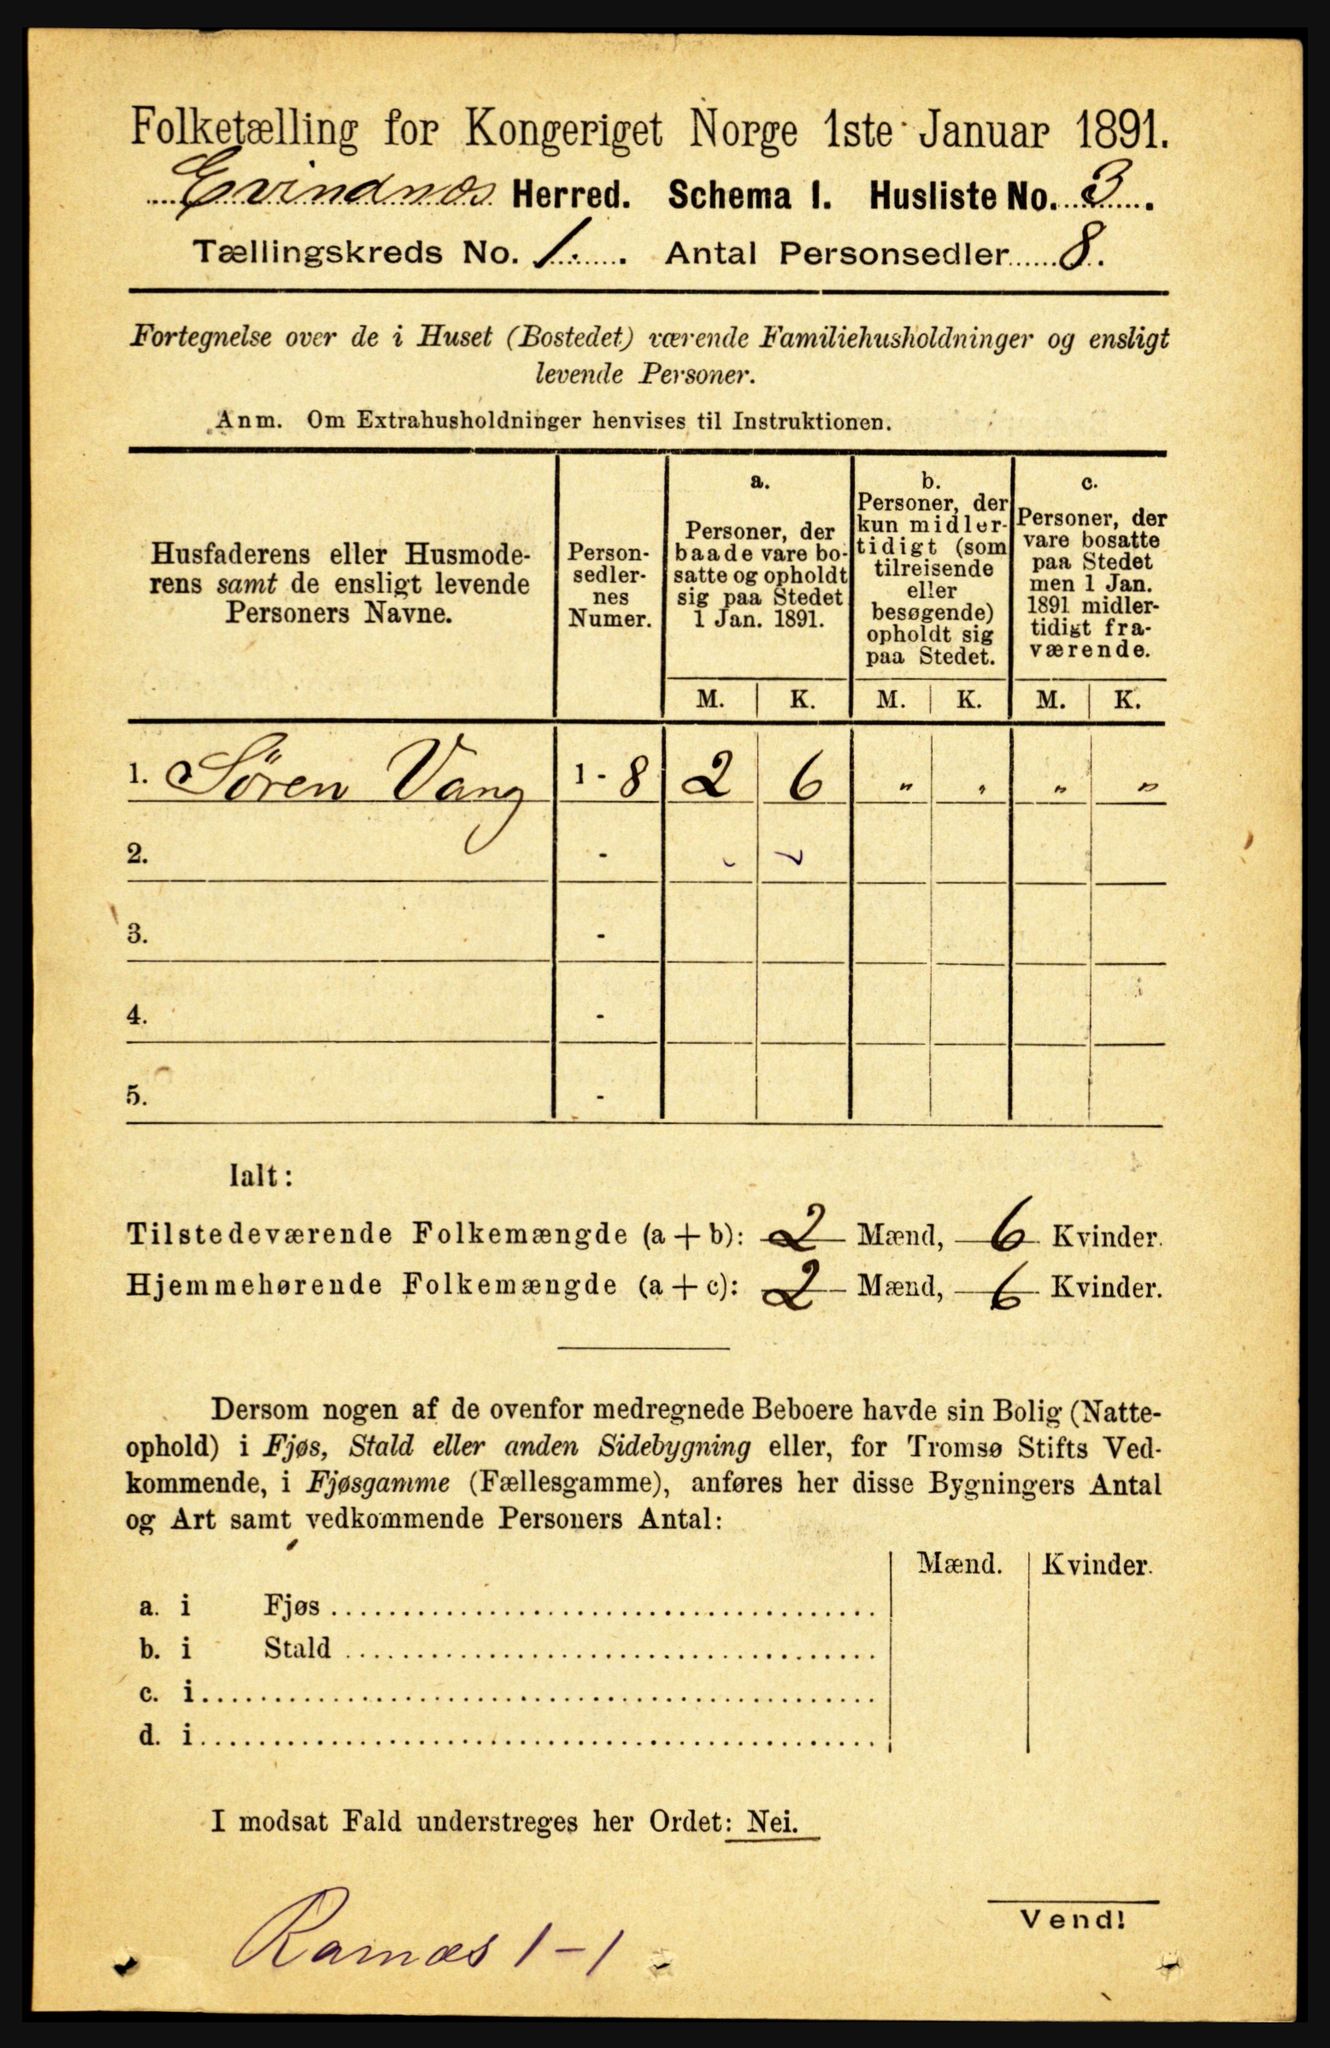 Folketælling for Kongeriget Norge 1ste Januar 1891.
Evindnæs Herred. Schema I. Husliste No. 3.
Tællingskreds No. 1. Antal Personsedler 8.
Fortegnelse over de i Huset (Bostedet) værende Familiehusholdninger og ensligt
levende Personer.
Anm. Om Extrahusholdninger henvises til Instruktionen.
Husfaderens eller Husmode-
rens samt de ensligt levende
Personers Navne.
Person-
sedler-
nes
Numer.
a.
Personer, der
baade vare bo-
satte og opholdt
sig paa Stedet
1 Jan. 1891.
b.
Personer, der
kun midler-
tidigt (som
tilreisende
eller
besøgende)
opholdt sig
paa Stedet.
c.
Personer, der
vare bosatte
paa Stedet
men 1 Jan.
1891 midler-
tidigt fra-
værende.
M. K. M. K. M. K.
1. Søren Vang 1 - 8 2 6 " " " "
2. -
3. -
4. -
5. -
Ialt:
Tilstedeværende Folkemængde (a + b): 2 Mænd, 6 Kvinder.
Hjemmehørende Folkemængde (a + c): 2 Mænd, 6 Kvinder.
Dersom nogen af de ovenfor medregnede Beboere havde sin Bolig (Natte-
ophold) i Fjøs, Stald eller anden Sidebygning eller, for Tromsø Stifts Ved-
kommende, i Fjøsgamme (Fællesgamme), anføres her disse Bygningers Antal
og Art samt vedkommende Personers Antal:
Mænd. Kvinder.
a. i Fjøs
b. i Stald
c. i
d. i
I modsat Fald understreges her Ordet: Nei.
Vend!
Ramæs 1-1